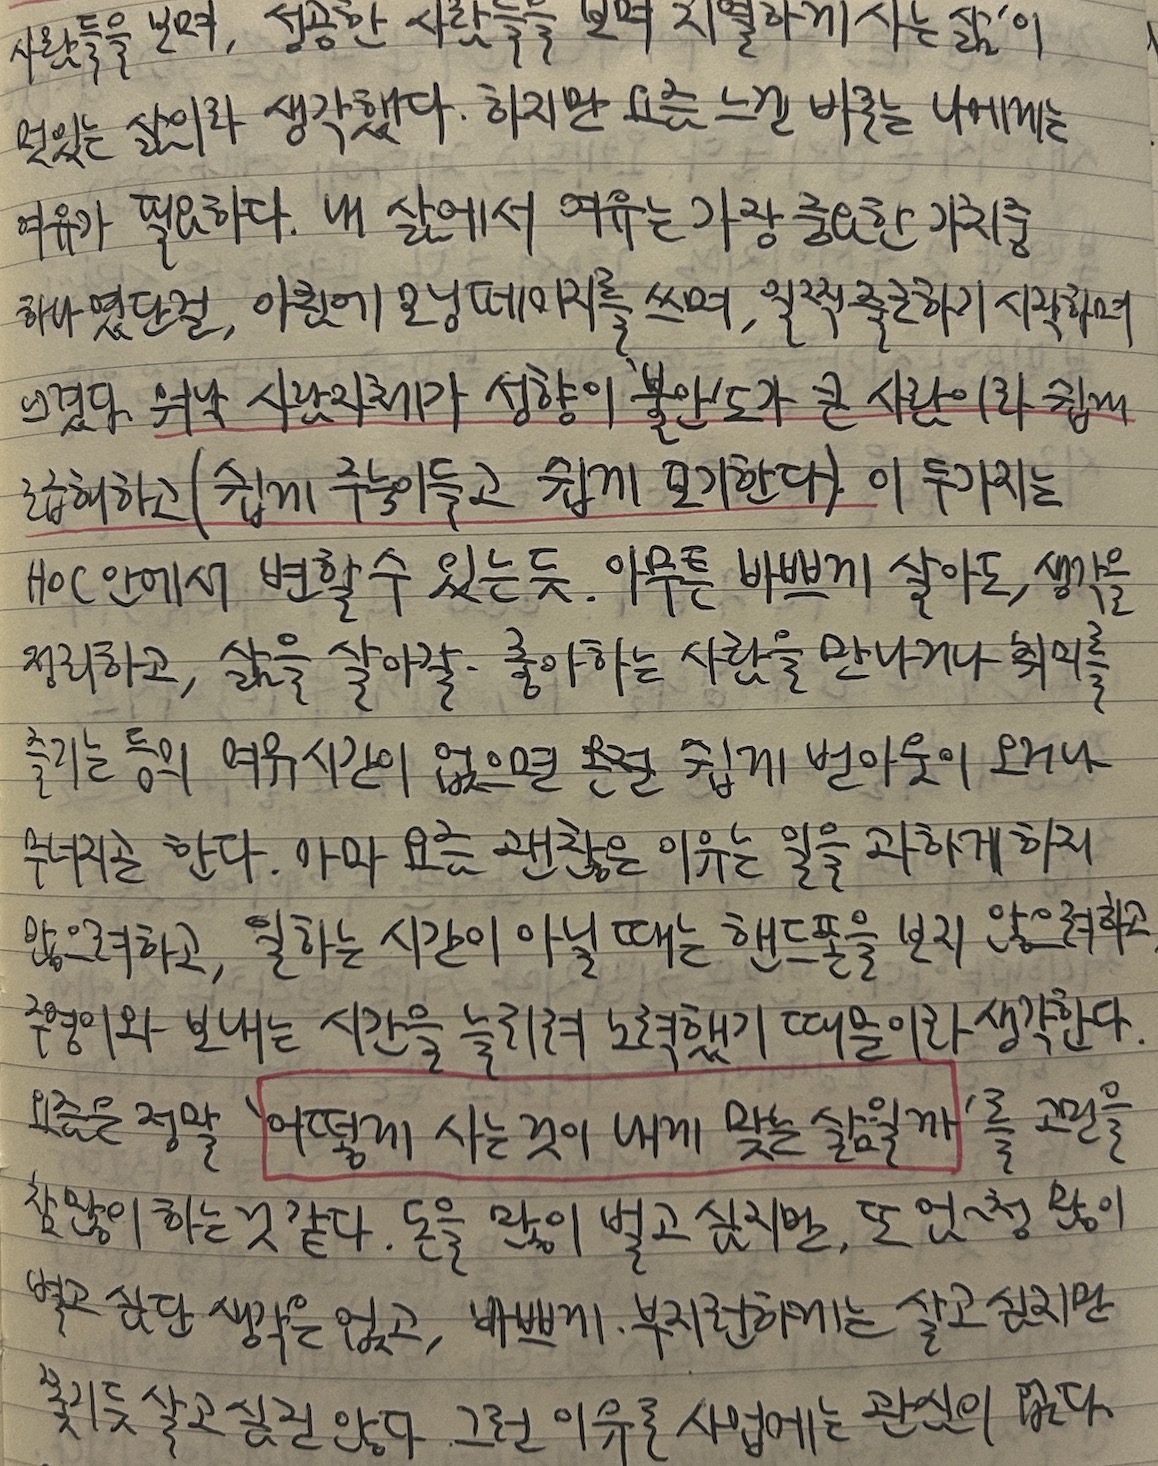 사람들을 보며, 성공한 사람들을 보며 치열하게 사는 삶'이
멋있는 삶이라 생각했다. 하지만 요즘 느낀 바로는 나에게는
여유가 필요하다. 내 삶에서 여유는 가장 중요한 가치중
하나였단걸, 아침에 모닝페이지를 쓰며, 일찍 출근하기 시작하며
느꼈다. 워낙 사람자체가 성향이 '불안'도가 큰 사람이라 쉽게
조급해하고 (쉽게 주눅이들고 쉽게 포기한다) 이 두가지는
HOC 안에서 변할 수 있는 듯. 아무튼 바쁘게 살아도, 생각을
정리하고, 삶을 살아갈. 좋아하는 사람을 만나거나 취미를
즐기는 등의 여유시간이 없으면 쉽게 번아웃이 오거나
무너지곤 한다. 아마 요즘 괜찮은 이유는 일을 과하게 하지
않으려하고, 일하는 시간이 아닐 때는 핸드폰을 보지 않으려하고,
주영이와 보내는 시간을 늘리려 노력했기 때문이라 생각한다.
요즘은 정말 '어떻게 사는것이 내게 맞는 삶일까'를 고민을
참 많이 하는 것 같다. 돈을 많이 벌고 싶지만, 또 엄~청 많이
벌고 싶단 생각은 없고, 바쁘게. 부지런하게는 살고 싶지만
쫓기듯 살고 싶진 않다. 그런 이유로 사업에는 관심이 없다.